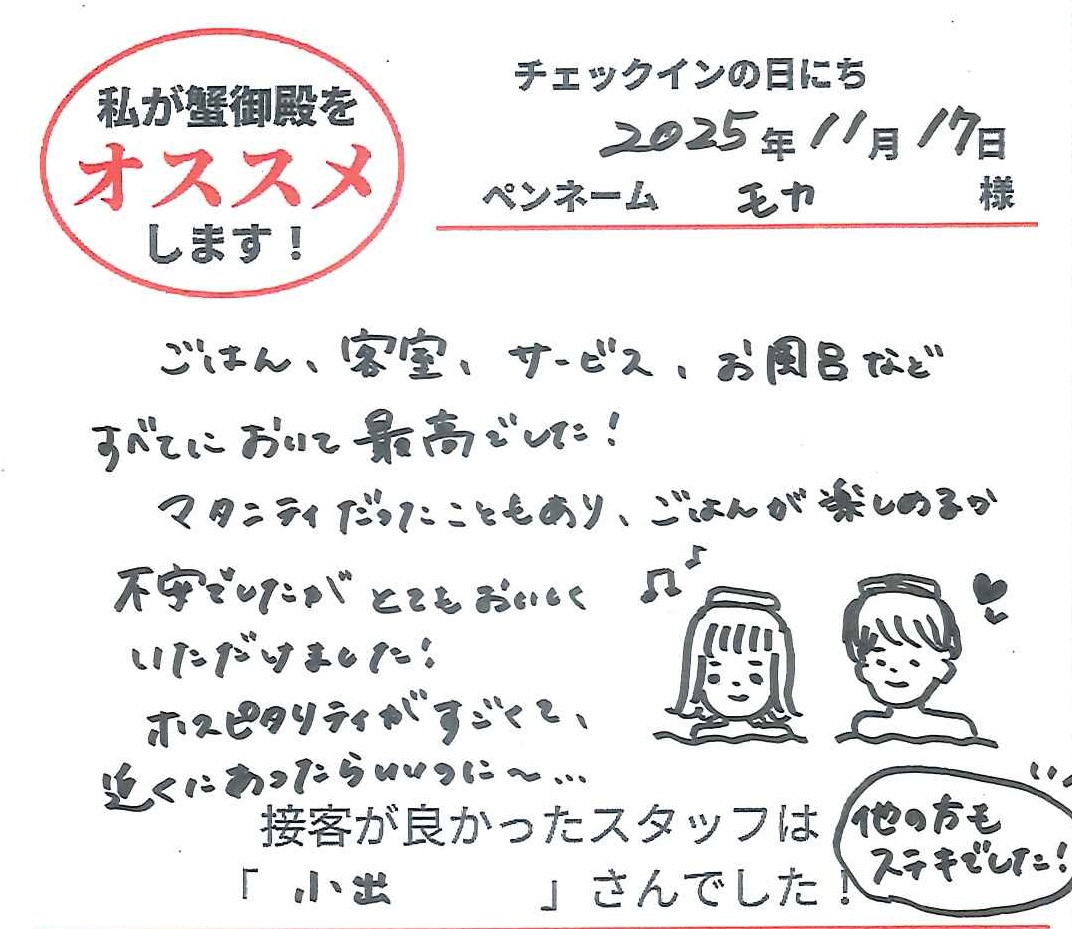 私が蟹御殿を
オススメ
します！
チェックインの日にち
2025年11月17日
ペンネーム モカ 様
ごはん、客室、サービス、お風呂など
すべてにおいて最高でした！
マタニティだったこともあり、ごはんが楽しめるか
不安でしたがとてもおいしく
いただけました！
ホスピタリティがすごくて、
近くにあったらいいのに〜…
接客が良かったスタッフは
「 小出 」さんでした！
他の方も
ステキでした！